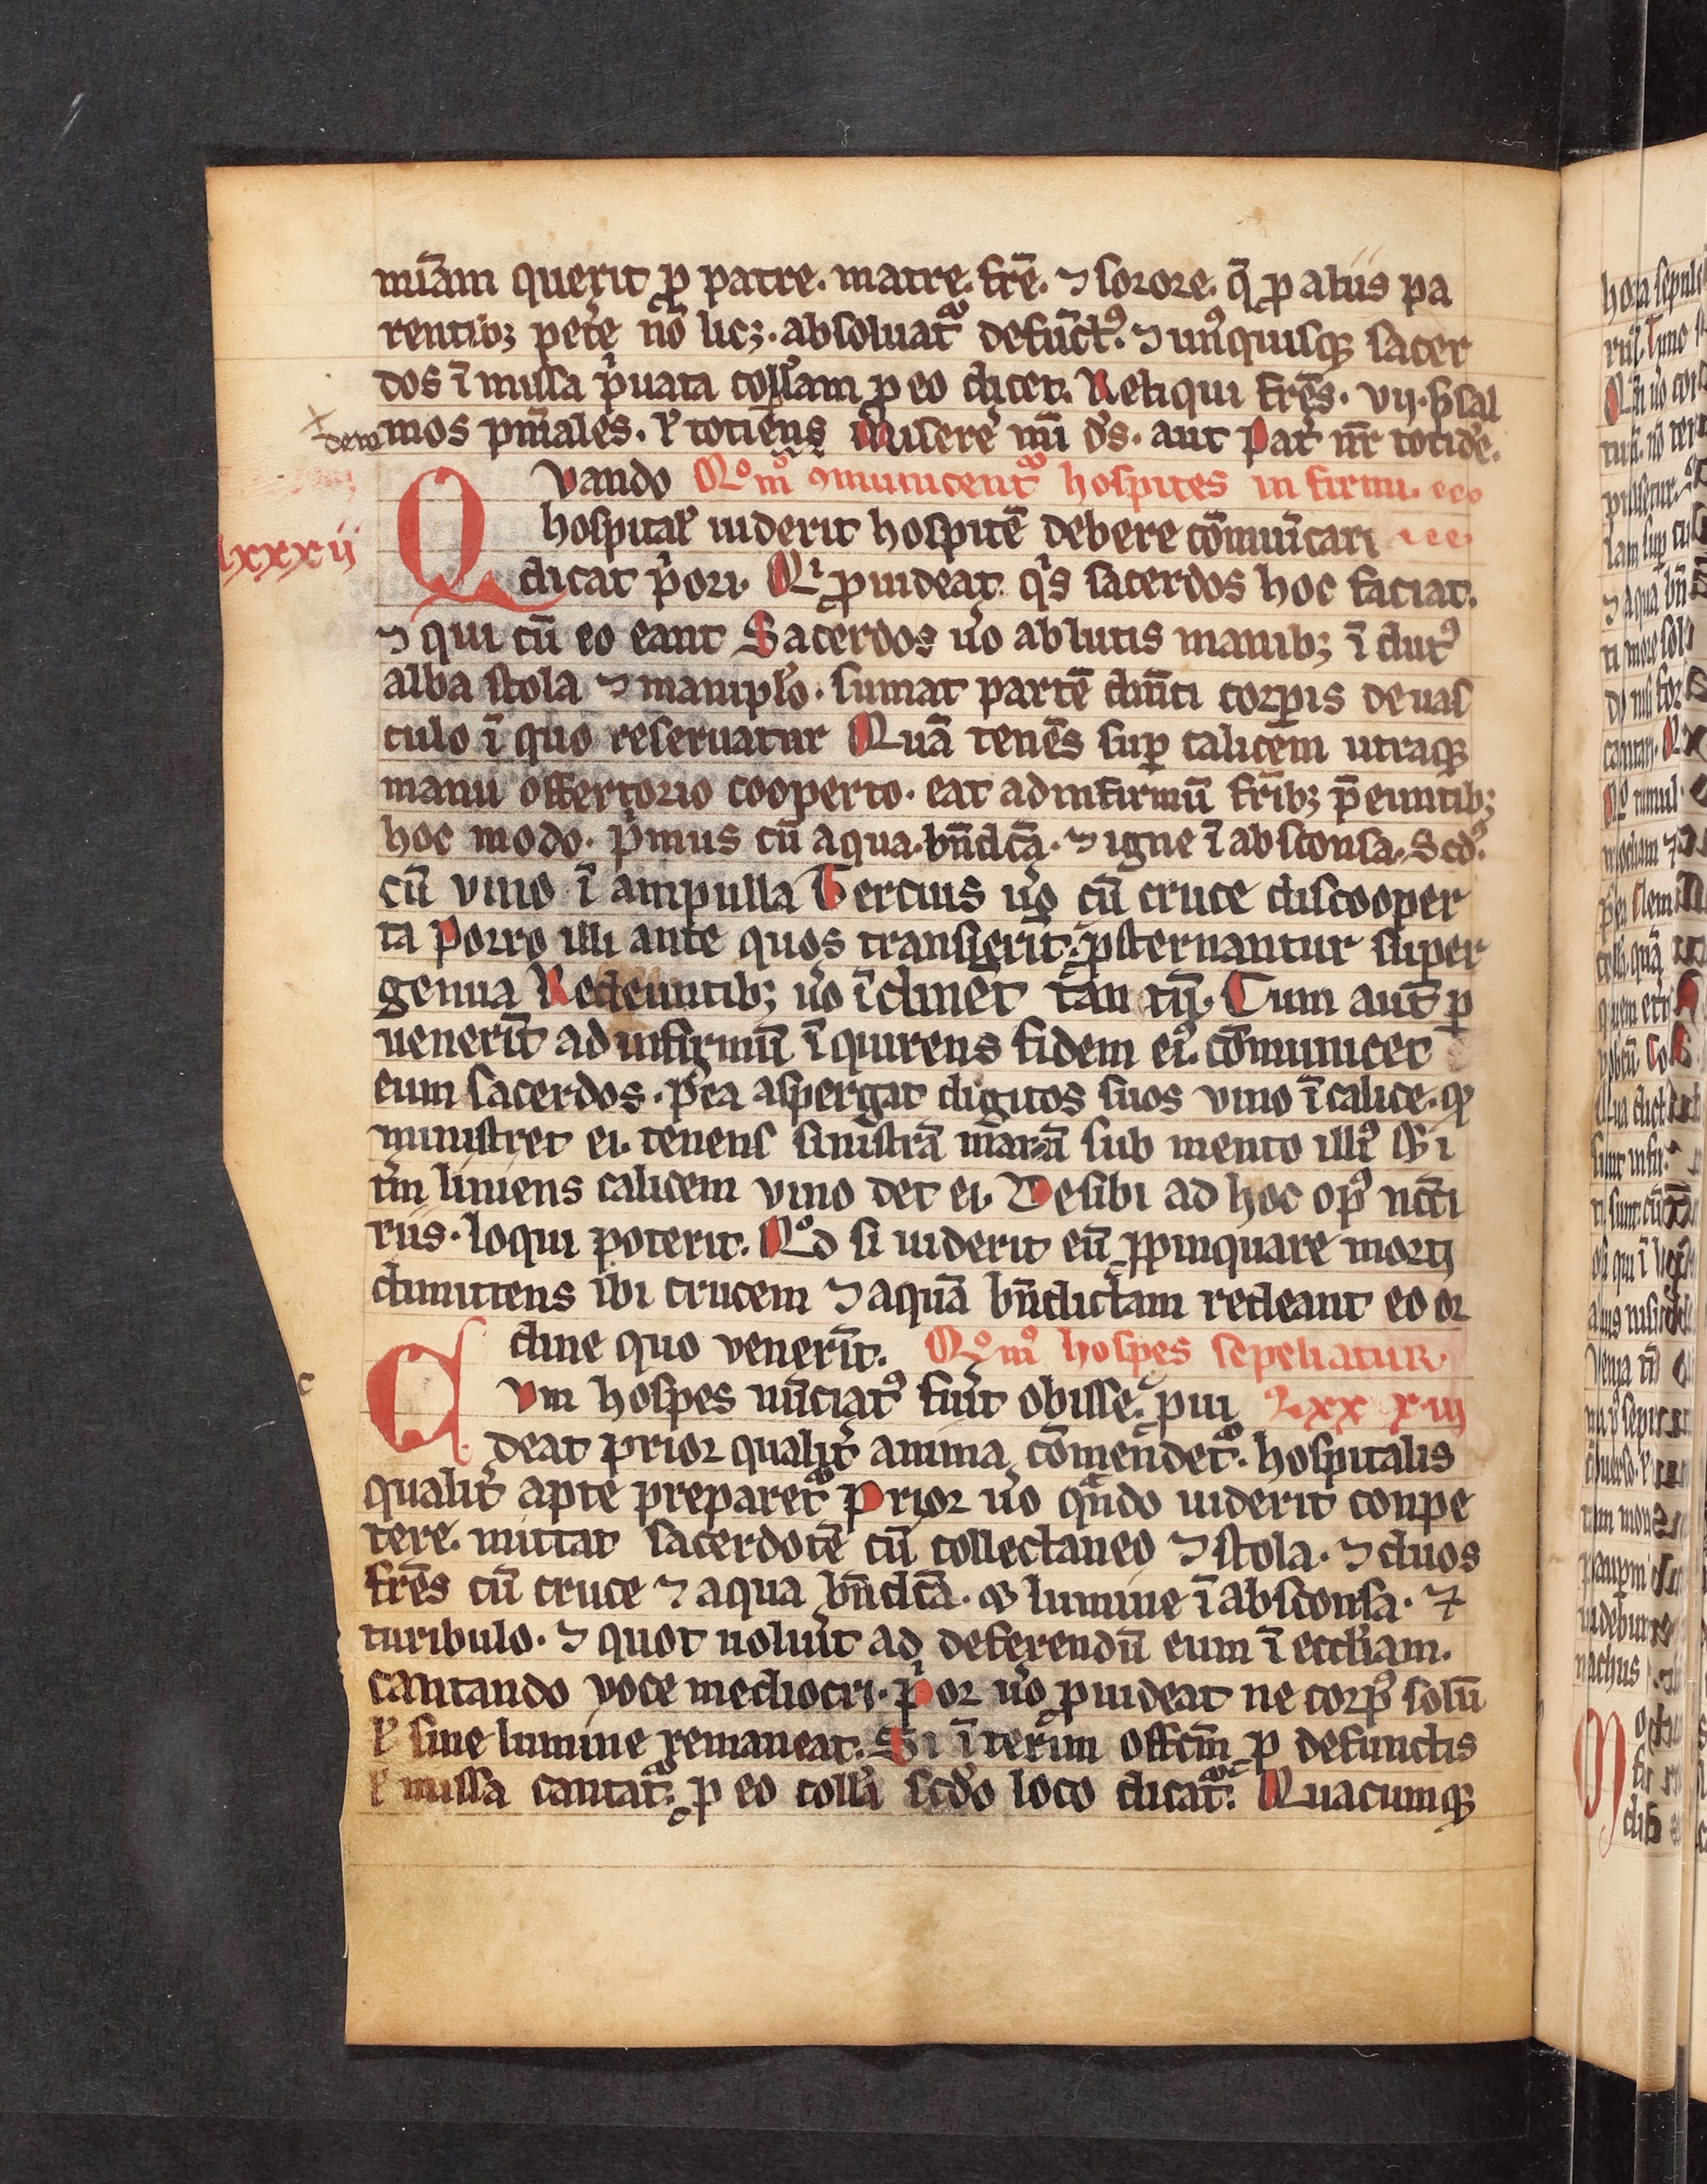 mīam querit ꝓ patre. matre. frē. ⁊ sorore. q̄ ꝓ aliis pa
rentibꝫ pet̾e nō licꝫ. absoluat᷑ defūct᷒. ⁊ un᷒quisqꝫ sacer
dos ī missa p̾uata coll̄am ꝓ eo dicet. Reliqui fr̄es. vij. psal
mos pn̄iales. ł totiens Miserere mī ds̄. aut Pat̾ nr̄ totidē.
dem
Vando Quōm᷒ ꝯmunicent᷑ hospites infirmi.
lxxxii
hospital᷒ uiderit hospitē debere cōmūicari
Q dicat p̾ori. Qi ꝓuideat. qͥs sacerdos hoc faciat.
⁊ qui cū eo eant Sacerdos u̾o ablutis manibꝫ īdut᷒
alba stola ⁊ manipl̾o. sumat partē dn̄ici corꝑis de uas
culo ī quo reseruatur Quā tenēs suꝑ calicem utraqꝫ
manu offertorio cooperto. eat ad infirmū fr̄ibꝫ p̄euntibꝫ
hoc modo. p̾mus cū aqua. bn̄dcā. ⁊ igne ī absconsa. Scd᷒.
cū vino ī ampulla Tercius u̾o cū cruce discooper
ta Porro illi ante quos transier̄it. ꝓsternantur super
genua Redeuntibꝫ u̾o īclinēt tān tū. Cum aut̄ ꝑ
uener̄it ad infirmū īquirens fidem ei᷒. cōmunicet
eum sacerdos. p᷒ea aspergat digitos suos vino ī calice. qꝫ
ministret ei. tenens sinistrā manū sub mento illi᷒
līniens calicem vino det ei. De sibi ad hoc op᷒ nc̄cī
riis. loqui poterit. Qͦd si uiderit eū ꝓpinquare morti
dimittens ibi crucem ⁊ aquā bn̄dictam redeant eo or
dine quo vener̄it. Quōm᷒ hospes sepeliatur.
Cvm hospes nūciat᷒ fu̾it obisse. ꝓui Lxxxiij
deat prior qualit̾ anima cōmendet᷑. hospitalis
qualit̾ apte preparet᷑ Prior u̾o qn̄do uiderit conpe
tere. mittat sacerdotē cū collectaneo ⁊ stola. ⁊ duos
fr̄es cū cruce ⁊ aqua bn̄dcā. qꝫ lumine ī absconsa. ⁊
turibulo. ⁊ quot uolu̾it ad deferendū eum ī eccl̄iam.
cantando voce mediocri. p̾or u̾o ꝓuideat ne corp᷒ solū
ł sine lumine remaneat. Si īterim offcm̄ ꝓ defunctis
ł missa cantat᷑. ꝓ eo coll̄a scd̾o loco dicat᷑. Quacumqꝫ